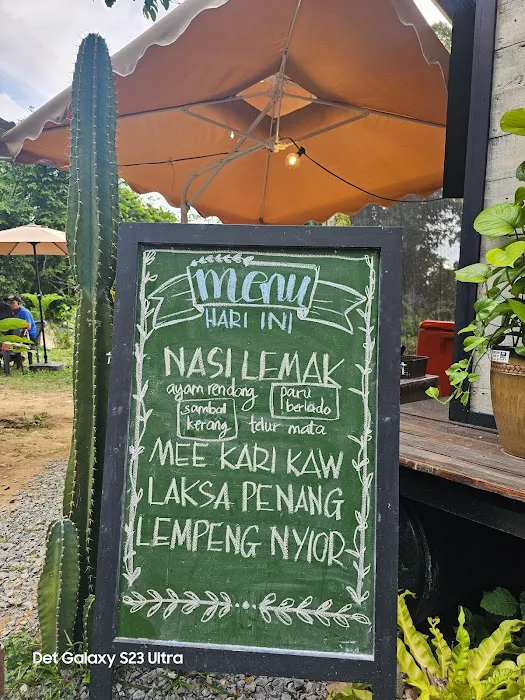 menu
HARI INI
NASI LEMAK
ayam rendang paru
berlado
sambal
kerang telur mata
MEE KARI KAW
LAKSA PENANG
LEMPENG NYIOR
Det Galaxy S23 Ultra